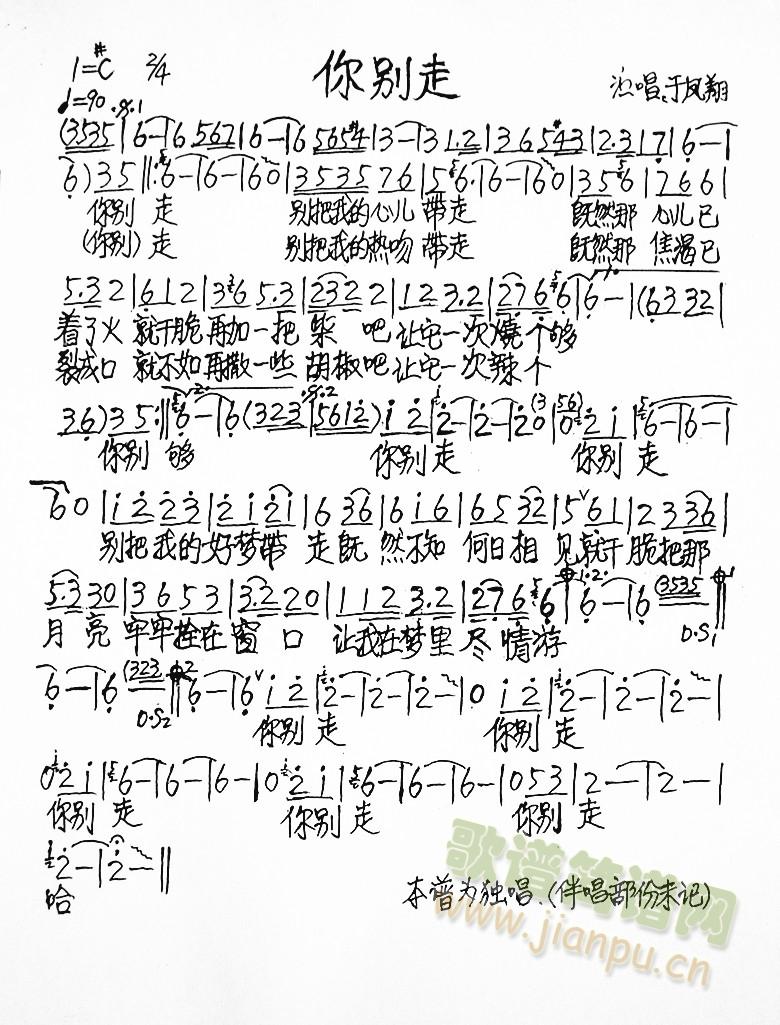 1=#C 2/4 你别走 演唱:于凤翔
♩=90
(3535|6-|6 567|6-|6 5654|3-|3 1.2|3 6 5#43|2.3|7|6-|
6) 3 5||:6-|6-|6 0|3535 7 6|5 6.|6-|6 0|3 5 6|7 6 6|
你别 走 别把我的心儿 带走 既然那 心儿已
(你别) 走 别把我的热吻 带走 既然那 焦渴已
5.3 2|6 1 2|3 6 5.3|2 3 2 2|1 2 3.2|2 7 6 6|6-|(6 3 3 2|
着了火 就干脆 再加一把 柴 吧 让它一次 烧个够
裂成口 就不如 再撒一些 胡椒吧 让它一次 辣个
3 6) 3 5:||6-|6 (3 2 3|5 6 1 2) i 2|2-|2-|2 0 (3|5 6) 0 2 i|6-|6-|
你别 够 你别 走 你别 走
6 0|i 2 2 3|2 i 2 i|6 3 6|6 i 6|6 5 3 2|5 6 1|2 3 3 6|
别把我的好梦带 走既 然不知 何日相 见就干脆把那
5.3 3 0|3 6 5 3|3.2 2 0|1 1 2 3.2|2 7 6 6|6-|6 (3535||
月 亮 牢牢拴在窗 口 让我在梦里 尽 情游
D.S1
6-|6 (323||6-|6 i 2|2-|2-|2-|0 i 2|2-|2-|2-|
D.S2
你别 走 你别 走
0 2 i|6-|6-|6-|0 2 i|6-|6-|6-|0 5 3|2-|2-|
你别 走 你别 走 你别 走
2-|2-||
哈
本谱为独唱.(伴唱部份未记)
歌谱简谱网
www.jianpu.cn